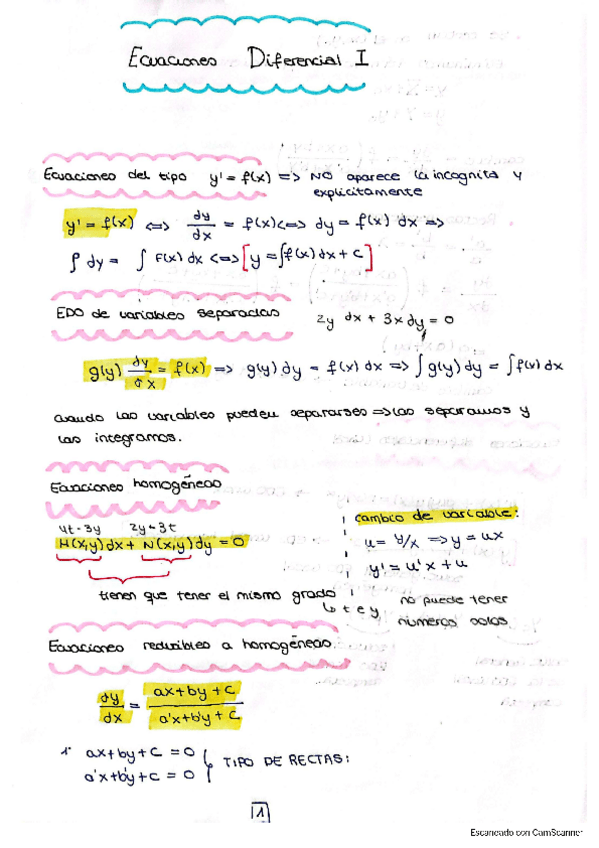 Ecuaciones Diferencial I
Ecuaciones del tipo y' = f(x) => NO aparece la incognita y
explícitamente
y' = f(x) <=> dy/dx = f(x) <=> dy = f(x) dx =>
∫ dy = ∫ F(x) dx <=> [y = ∫f(x) dx + C]
EDO de variables separadas 2y dx + 3x dy = 0
g(y) dy/dx = f(x) => g(y) dy = f(x) dx => ∫g(y) dy = ∫f(x) dx
cuando las variables pueden separarses => las separamos y
las integramos.
Ecuaciones homogéneas
4t - 3y 2y + 3t
M(x,y) dx + N(x,y) dy = 0
tienen que tener el mismo grado
cambio de variable:
u = y/x => y = ux
y' = u'x + u
t e y no puede tener
números solos
Ecuaciones reducibles a homogéneas.
dy/dx = ax + by + c / a'x + b'y + c
1º ax + by + c = 0
a'x + b'y + c = 0
TIPO DE RECTAS:
1
Escaneado con CamScanner